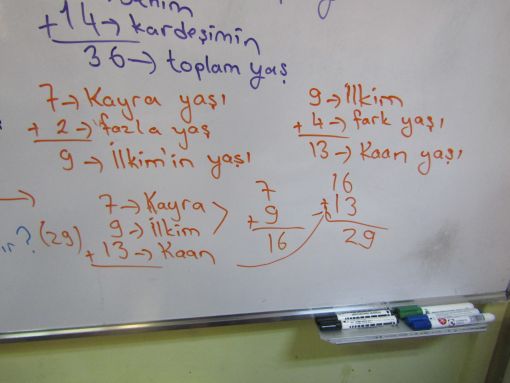 +14 → kardeşimin
36 → toplam yaş
7 → Kayra yaşı
+ 2 → fazla yaş
9 → İlkim'in yaşı
9 → İlkim
+ 4 → fark yaşı
13 → Kaan yaşı
7 → Kayra
9 → İlkim
+ 13 → Kaan
? (29)
7
+ 9
16
16
+ 13
29